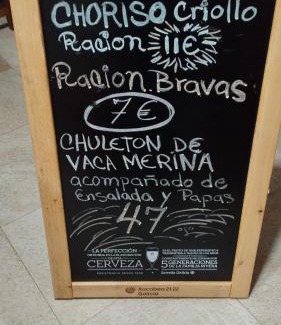 CHORISO Criollo
Racion 11€
Racion Bravas
7€
CHULETON DE
VACA MERINA
acompañado de
Ensalada y Papas
47
LA PERFECCIÓN
CERVEZA
5 GENERACIONES
DE LA FAMILIA RIVERA
Estrella Galicia
Xacobeo 21·22
Galicia